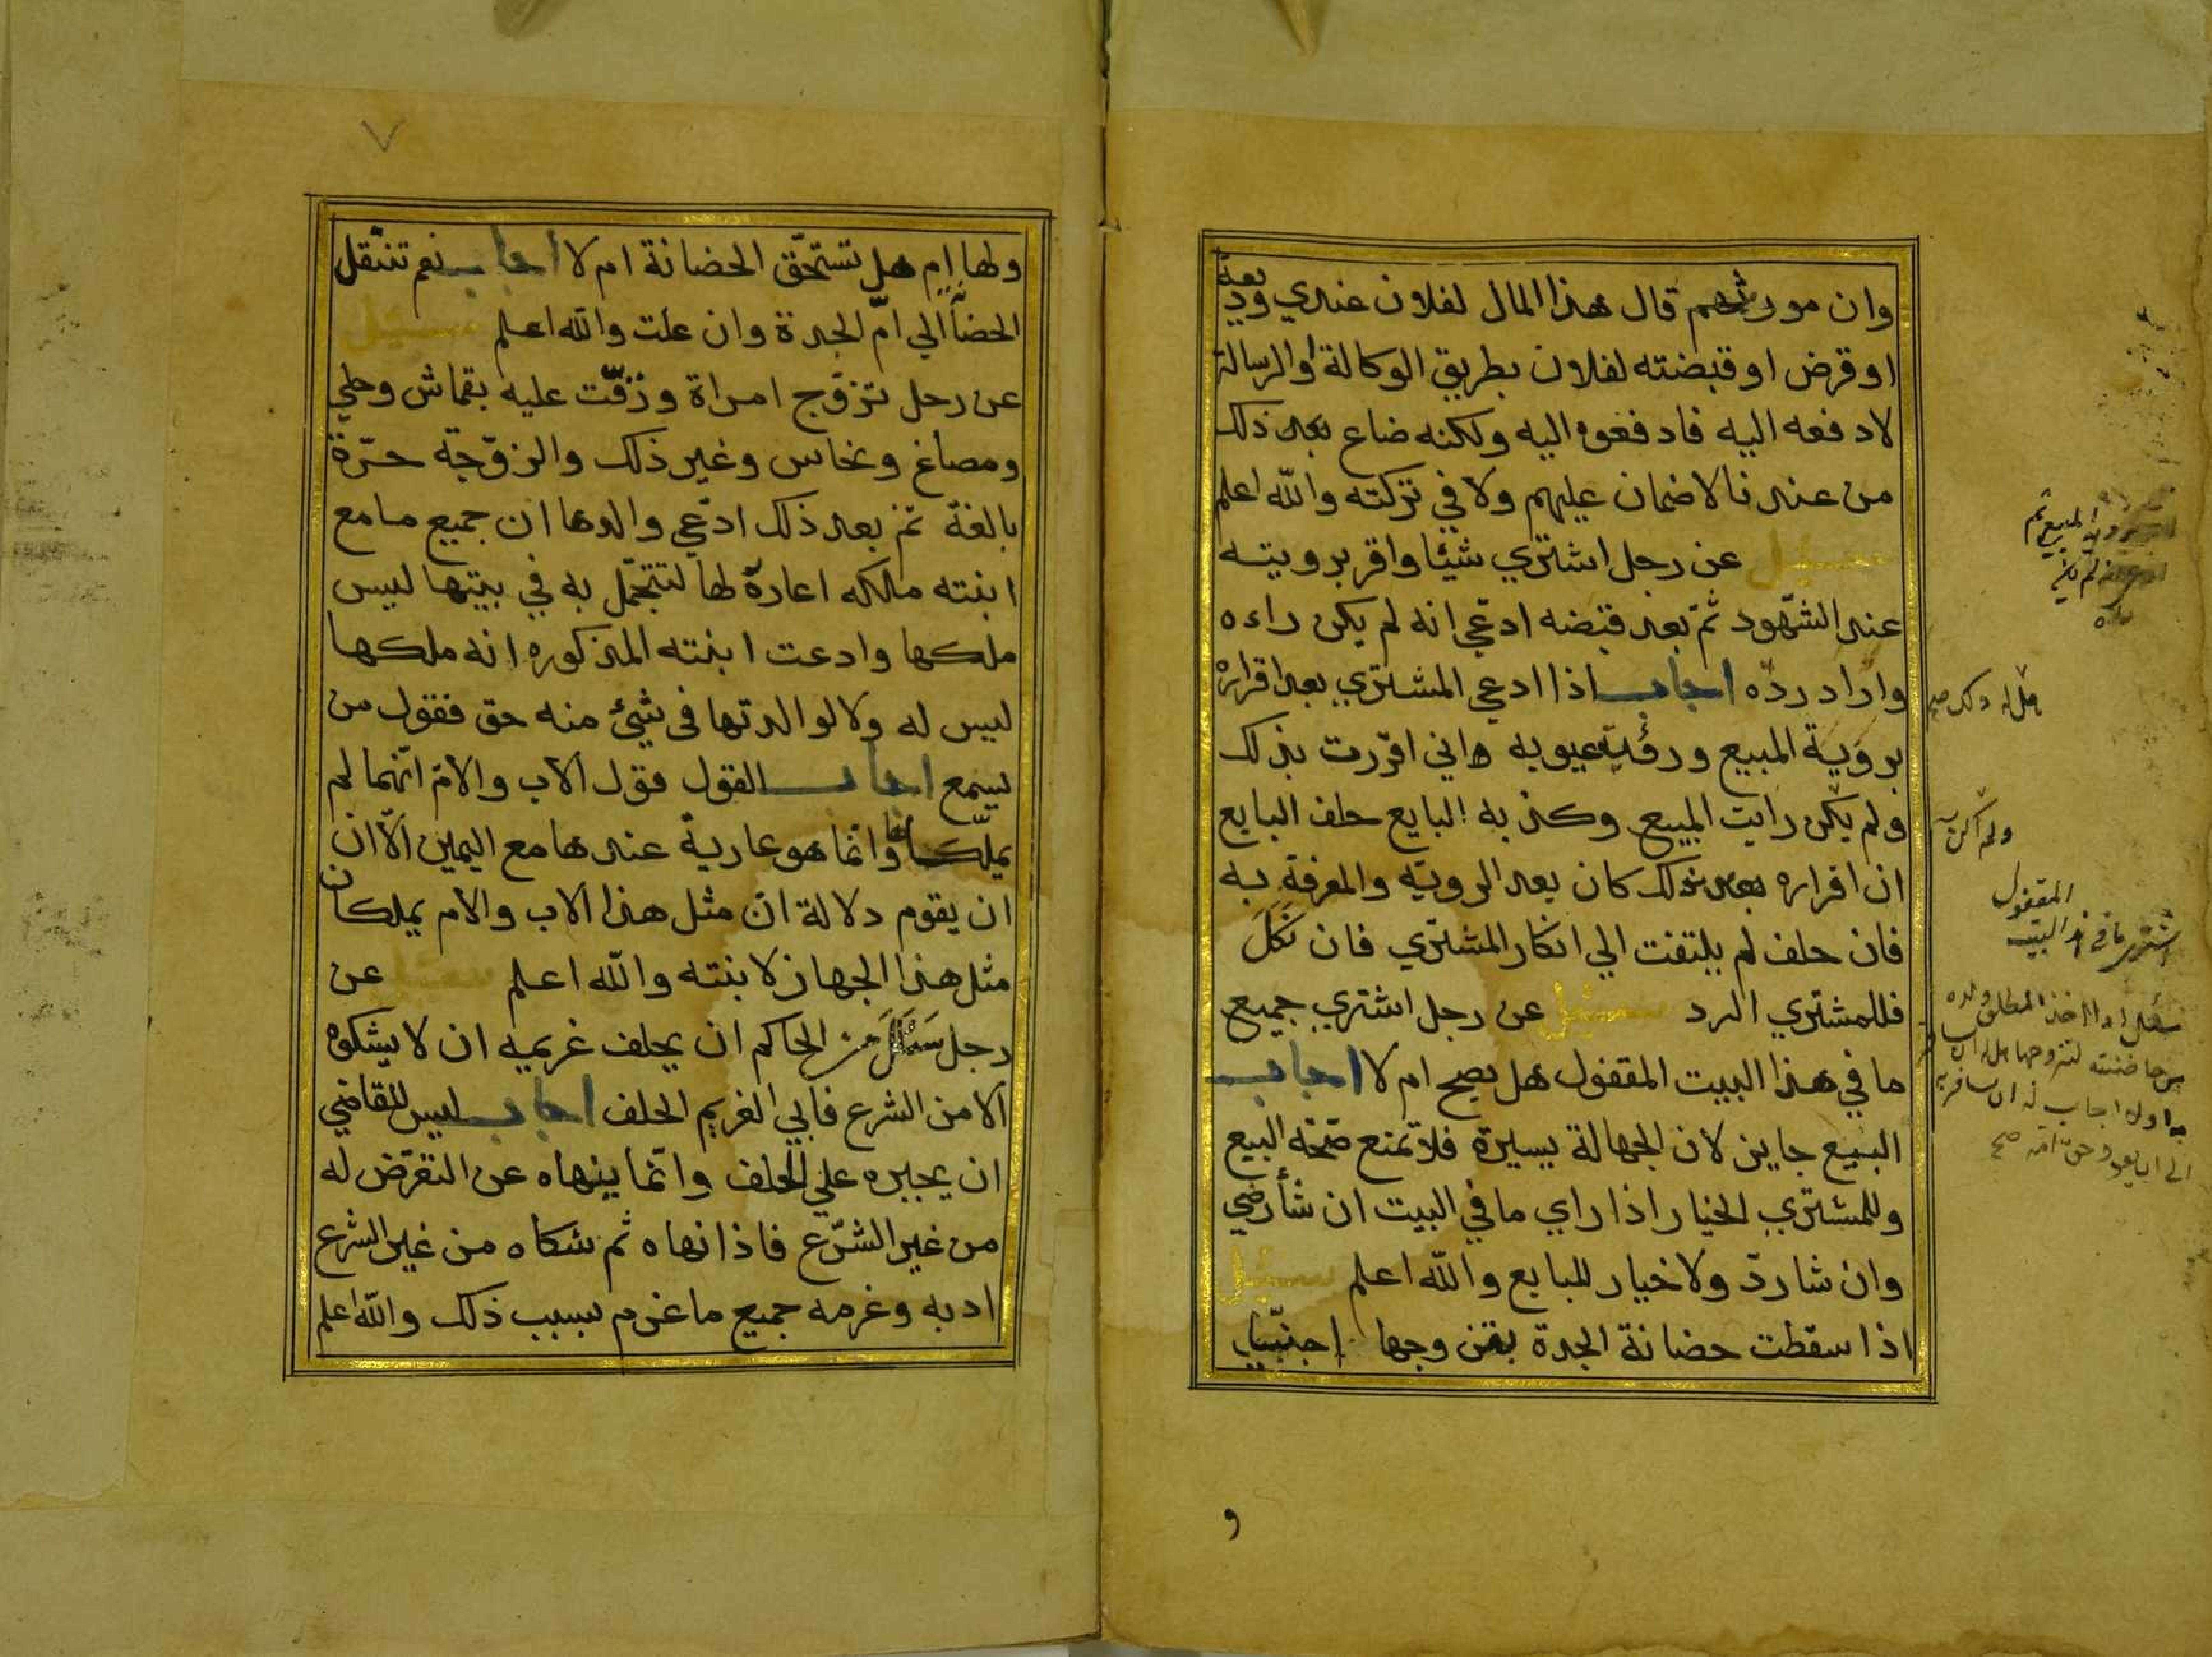 وان مورثهم قال هذا المال لفلان عندي وديعة
او قرض او قبضته لفلان بطريق الوكالة او الرسالة
لادفعه اليه فادفعوه اليه ولكنه ضاع بعد ذلك
من عندنا لا ضمان عليهم ولا في تركته والله اعلم
سئيل عن رجل اشتري شيئا واقر برويته
عند الشهود ثم بعد قبضه ادعي انه لم يكن راءه
واراد رده اجاب اذا ادعي المشتري بعد اقراره
بروية المبيع ورؤية عيوبه واني اقررت بذلك
ولم يكن رايت المبيع وكذبه البايع حلف البايع
ان اقراره بعد ذلك كان بعد الروية والمعرفة به
فان حلف لم يلتفت الي انكار المشتري فان نكل
فللمشتري الرد سئيل عن رجل اشتري جميع
ما في هذا البيت المقفول هل يصح ام لا اجاب
البيع جايز لان الجهالة يسيرة فلا تمنع صحة البيع
وللمشتري الخيار اذا راي ما في البيت ان شأ رضي
وان شا رد ولا خيار للبايع والله اعلم سئيل
اذا سقطت حضانة الجدة بتزوجها اجنبيا
هل له ذلك صح
ولم اكن
المقفول
و
ولها ام هل تستحق الحضانة ام لا اجاب نعم تنتقل
الحضا الي ام الجدة وان علت والله اعلم سئيل
عن رجل تزوج امراة وزفت عليه بقماش وحلي
ومصاغ ونحاس وغير ذلك والزوجة حرة
بالغة ثم بعد ذلك ادعي والدها ان جميع ما مع
ابنته ملكه اعارة لها لتتجمل به في بيتها ليس
ملكها وادعت ابنته المذكوره انه ملكها
ليس له ولا لوالدتها في شئ منه حق فقول من
يسمع اجاب القول قول الاب والام انهما لم
يملكاها وانما هو عارية عندها مع اليمين الا ان
ان يقوم دلالة ان مثل هذا الاب والام يملكان
مثل هذا الجهاز لابنته والله اعلم سئيل عن
رجل سئل من الحاكم ان يحلف غريمه ان لا يشكوه
الا من الشرع فابي الغريم الحلف اجاب ليس للقاضي
ان يجبره علي الحلف وانما ينهاه عن التعرض له
من غير الشرع فاذا نهاه ثم شكاه من غير الشرع
ادبه وغرمه جميع ما غرم بسبب ذلك والله اعلم